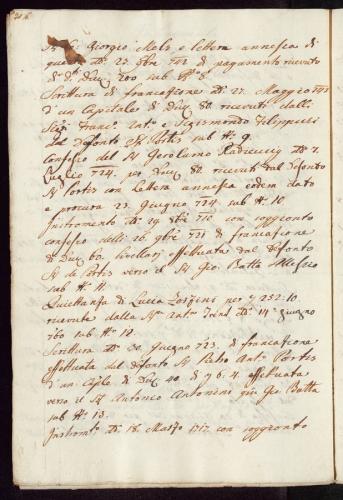 Giorgio Mels e lettera annessa di
23. 9bre 741 di pagamento ricevuto
200 sub N° 8.
Scrittura di francatione Dt. 27. Maggio 741
d'un Capitale di Duc. 80 ricevuti dalli
Sigri Franc.o Ant.o e Sigismondo Filippucci
dal Defonto Sr Portis sub N° 9.
Confesso del Sr Gerolamo Radicucij Dt. 7.
Luglio 724. per Duc. 80. ricevuti dal Defonto
Sr Portis con Lettera annessa eodem dato
e procura 23. Giugno 724 sub N° 10.
Instromento Dt. 24. 9bre 710 con soggionto
confesso delli 26. 9bre 721 di francatione
di Duc. 60 livellarj effettuata dal Defonto
Sr de Portis verso il Sr Gio: Batta
sub N° 11.
Quiettanza di Lucia per 252:10
ricevute dalla Dt. 14 giugno
760 sub N° 12.
Scrittura Dt. 30. Giugno 723. di francatione
effettuata dal defonto Sr Ant.o Portis
d'un Cap.le di Duc. 40. di 6. 4 effettuata
verso il Sr Antonio Antonini qm Gio: Batta
sub N° 13.
Instrom.to Dt. 18. Marzo 1717 con soggionto